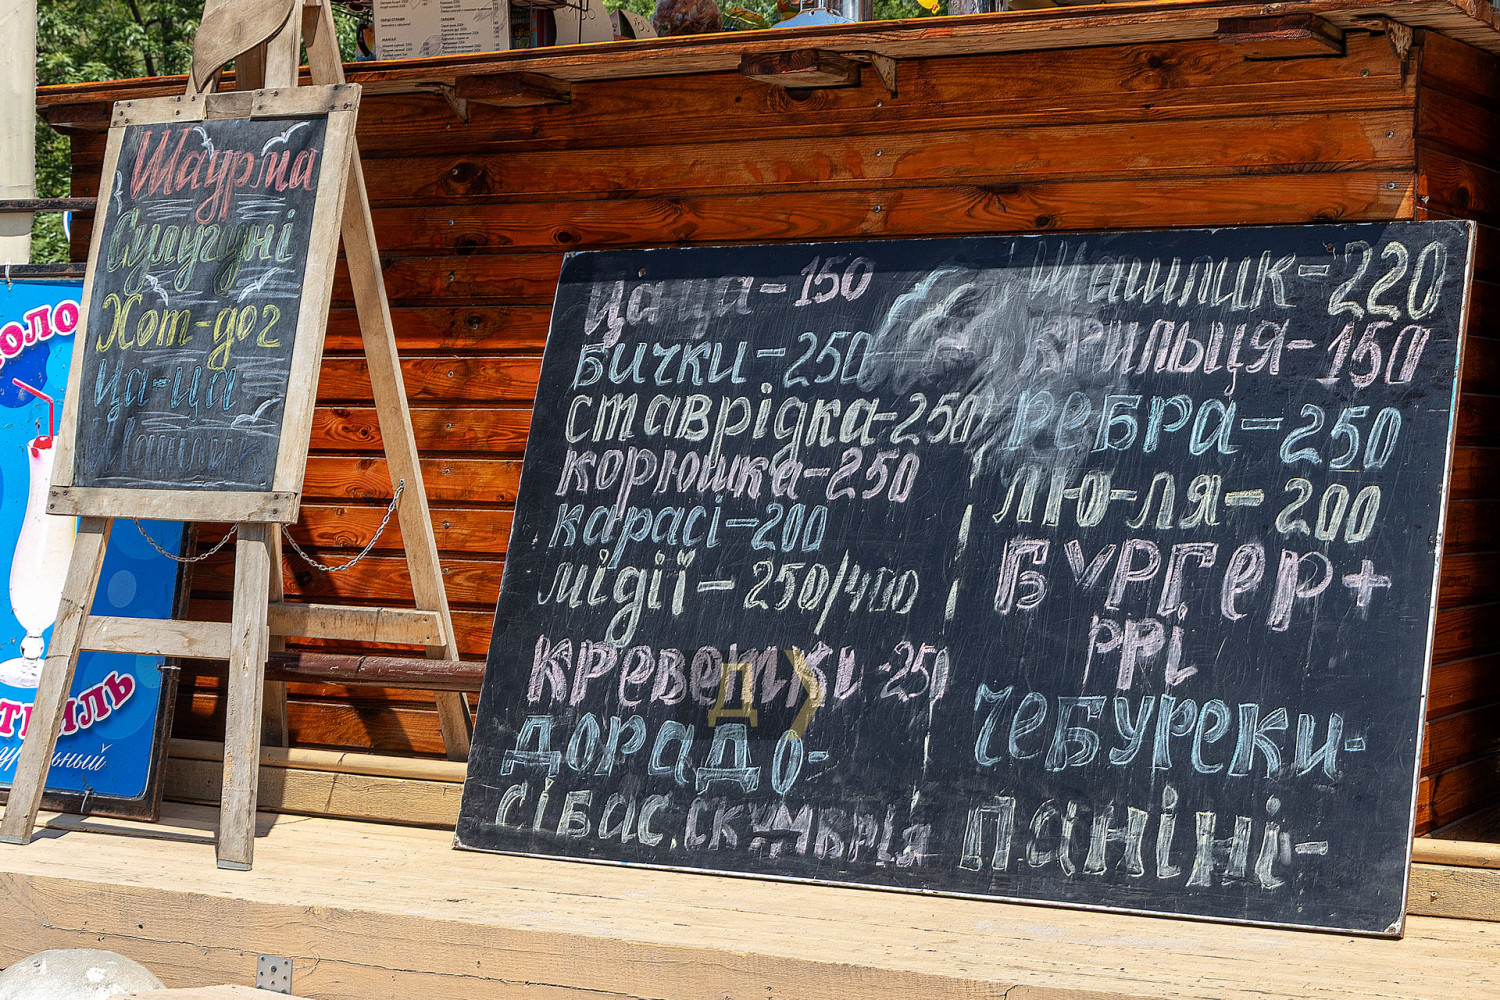 Шаурма
Сулугуні
Хот-дог
Ца-ца
Шашлик
Цаца-150
Бички-250
ставрідка-250
корюшка-250
карасі-200
мідії-250/400
креветки-250
дорадо-
сібас. скумбрія
Шашлик-220
крильця-150
ребра-250
лю-ля-200
бургер+
ррі
чебуреки-
паніні-
оло